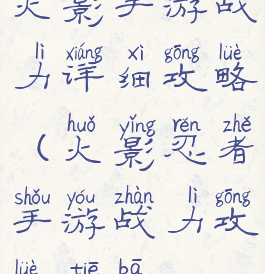 火影手游战
lì xiáng xì gōng lüè
力详细攻略
huǒ yǐng rěn zhě
（火影忍者
shǒu yóu zhàn lì gōng
手游战力攻
lüè tiē bā